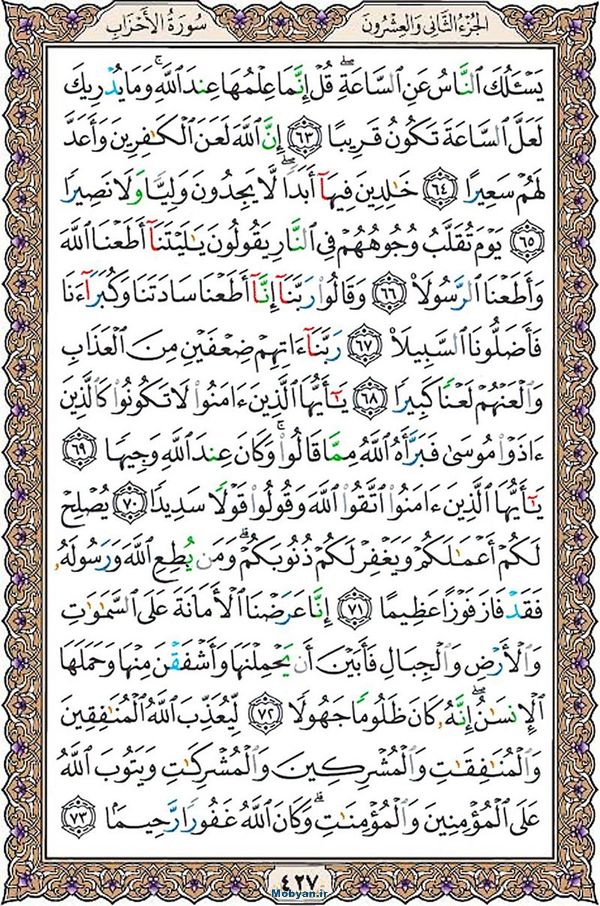 سُورَةُ الأَحْزَابِ
الجُزْءُ الثَّانِي وَالعِشْرُونَ
يَسْـَٔلُكَ ٱلنَّاسُ عَنِ ٱلسَّاعَةِۖ قُلْ إِنَّمَا عِلْمُهَا عِندَ ٱللَّهِۚ وَمَا يُدْرِيكَ
لَعَلَّ ٱلسَّاعَةَ تَكُونُ قَرِيبًا ٦٣ إِنَّ ٱللَّهَ لَعَنَ ٱلْكَٰفِرِينَ وَأَعَدَّ
لَهُمْ سَعِيرًا ٦٤ خَٰلِدِينَ فِيهَآ أَبَدًاۖ لَّا يَجِدُونَ وَلِيًّا وَلَا نَصِيرًا
٦٥ يَوْمَ تُقَلَّبُ وُجُوهُهُمْ فِى ٱلنَّارِ يَقُولُونَ يَٰلَيْتَنَآ أَطَعْنَا ٱللَّهَ
وَأَطَعْنَا ٱلرَّسُولَا۠ ٦٦ وَقَالُوا۟ رَبَّنَآ إِنَّآ أَطَعْنَا سَادَتَنَا وَكُبَرَآءَنَا
فَأَضَلُّونَا ٱلسَّبِيلَا۠ ٦٧ رَبَّنَآ ءَاتِهِمْ ضِعْفَيْنِ مِنَ ٱلْعَذَابِ
وَٱلْعَنْهُمْ لَعْنًا كَبِيرًا ٦٨ يَٰٓأَيُّهَا ٱلَّذِينَ ءَامَنُوا۟ لَا تَكُونُوا۟ كَٱلَّذِينَ
ءَاذَوْا۟ مُوسَىٰ فَبَرَّأَهُ ٱللَّهُ مِمَّا قَالُوا۟ۚ وَكَانَ عِندَ ٱللَّهِ وَجِيهًا ٦٩
يَٰٓأَيُّهَا ٱلَّذِينَ ءَامَنُوا۟ ٱتَّقُوا۟ ٱللَّهَ وَقُولُوا۟ قَوْلًا سَدِيدًا ٧٠ يُصْلِحْ
لَكُمْ أَعْمَٰلَكُمْ وَيَغْفِرْ لَكُمْ ذُنُوبَكُمْۗ وَمَن يُطِعِ ٱللَّهَ وَرَسُولَهُۥ
فَقَدْ فَازَ فَوْزًا عَظِيمًا ٧١ إِنَّا عَرَضْنَا ٱلْأَمَانَةَ عَلَى ٱلسَّمَٰوَٰتِ
وَٱلْأَرْضِ وَٱلْجِبَالِ فَأَبَيْنَ أَن يَحْمِلْنَهَا وَأَشْفَقْنَ مِنْهَا وَحَمَلَهَا
ٱلْإِنسَٰنُۖ إِنَّهُۥ كَانَ ظَلُومًا جَهُولًا ٧٢ لِّيُعَذِّبَ ٱللَّهُ ٱلْمُنَٰفِقِينَ
وَٱلْمُنَٰفِقَٰتِ وَٱلْمُشْرِكِينَ وَٱلْمُشْرِكَٰتِ وَيَتُوبَ ٱللَّهُ
عَلَى ٱلْمُؤْمِنِينَ وَٱلْمُؤْمِنَٰتِۗ وَكَانَ ٱللَّهُ غَفُورًا رَّحِيمًۢا ٧٣
٤٢٧
Mobyan.ir